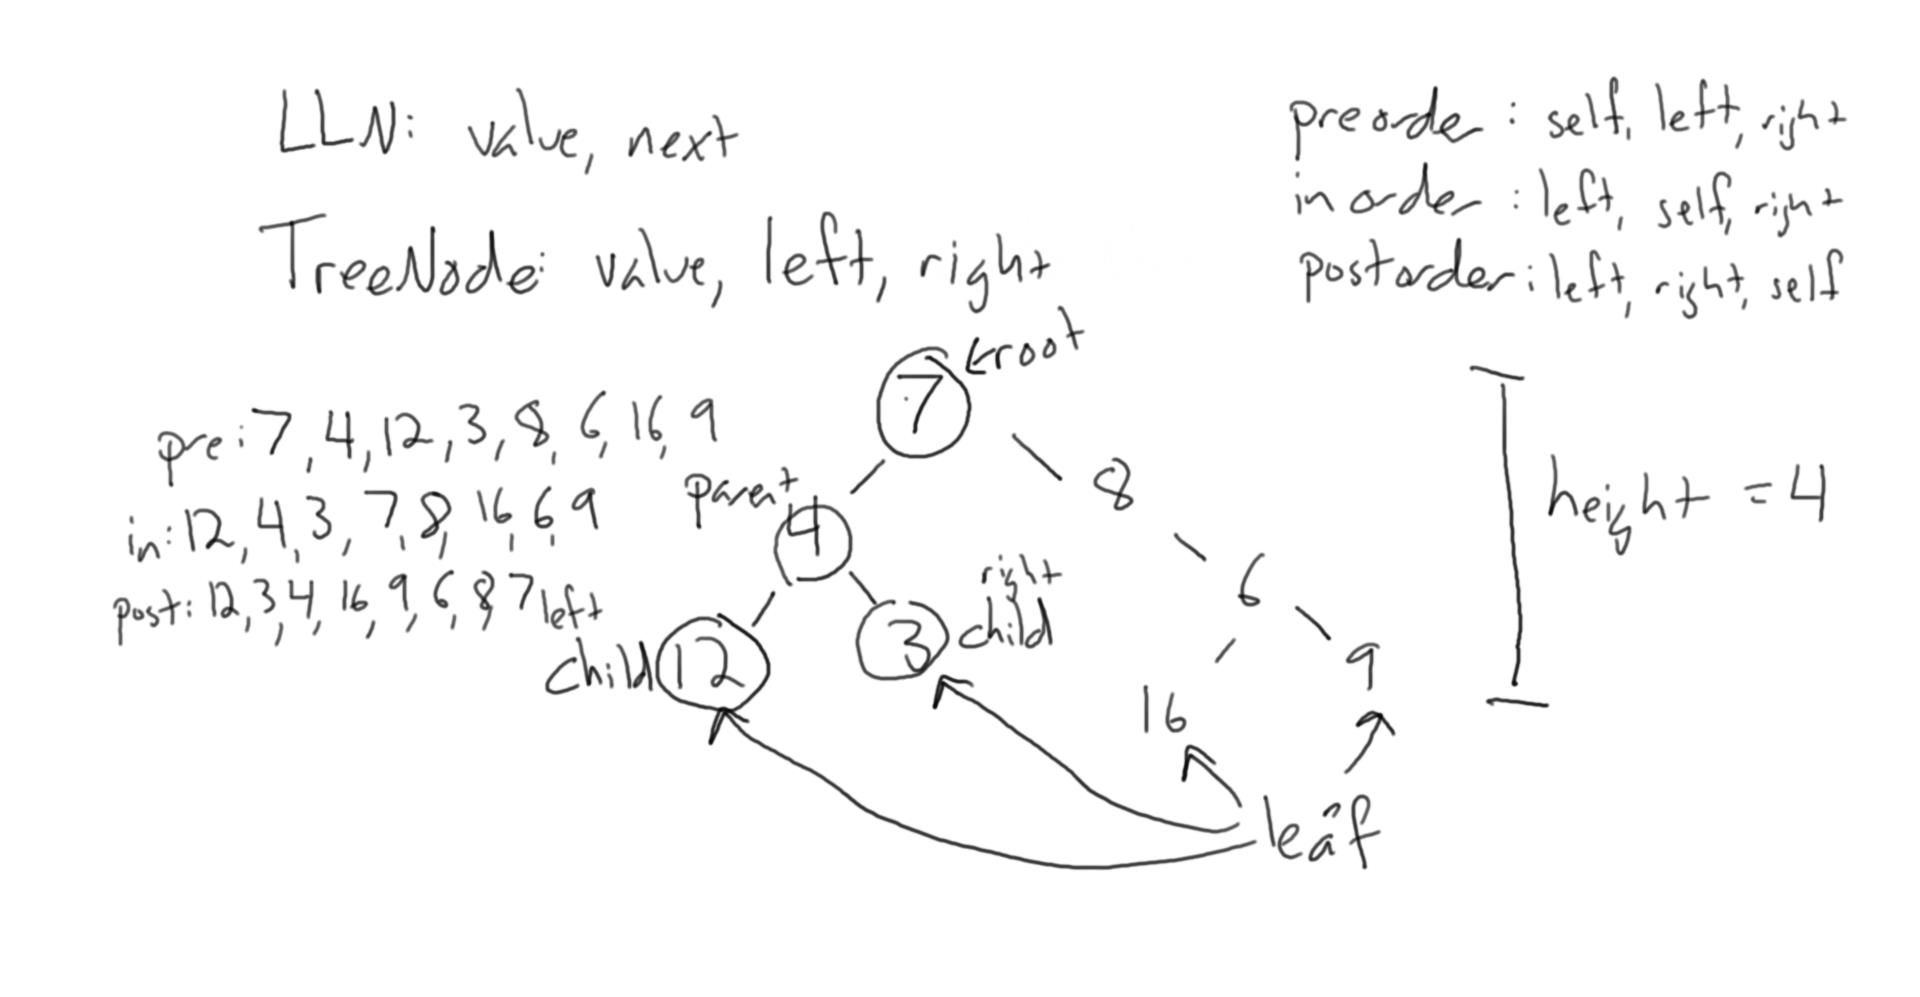 LLN: value, next
TreeNode: value, left, right
preorder: self, left, right
inorder: left, self, right
postorder: left, right, self
pre: 7, 4, 12, 3, 8, 6, 16, 9
in: 12, 4, 3, 7, 8, 16, 6, 9
post: 12, 3, 4, 16, 9, 6, 8, 7
7
root
parent
4
8
left
child
12
3
right
child
6
16
9
leaf
height = 4